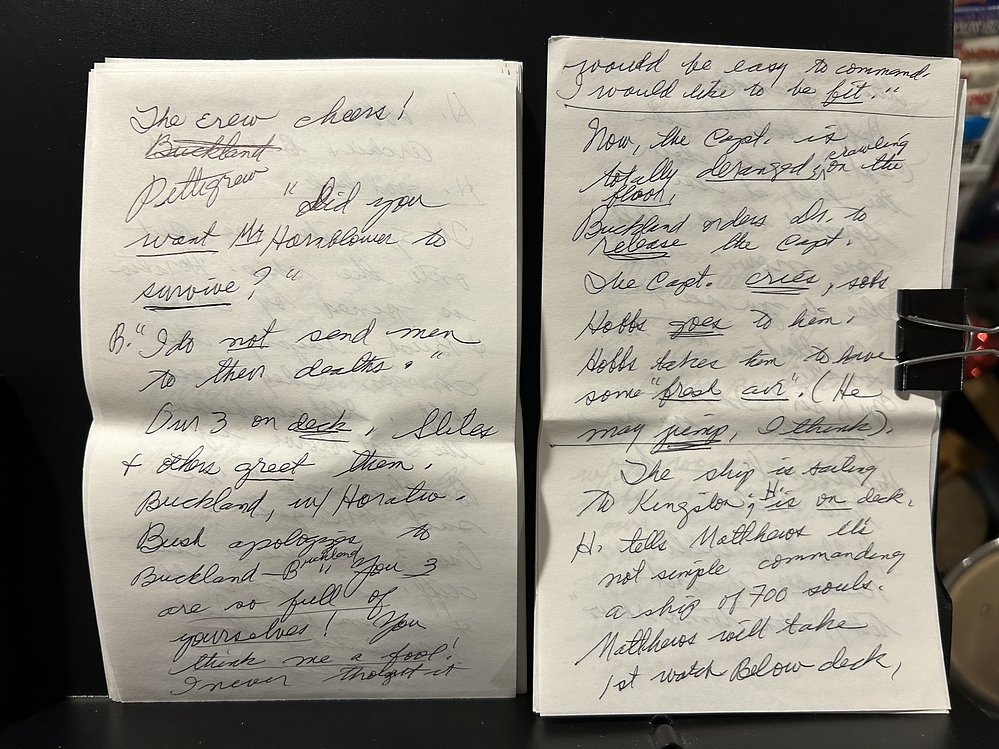 The crew cheers!
Buckland
Pettigrew
"Did you
want Mr Hornblower to
survive?"
B. "I do not send men
to their deaths."
Our 3 on deck, Slites
+ others greet them.
Buckland, w/ Horatio.
Bush apologizes to
Buckland – Buckland "You 3
are so full of
yourselves! You
think me a fool!
I never thought it
would be easy to command.
I would like to be fit."
Now, the Capt. is
totally deranged, crawling on the
floor.
Buckland orders Dr. to
release the Capt.
The Capt. cries, sobs
Hobbs goes to him.
Hobbs takes him to have
some "fresh air". (He
may jump, I think).
The ship is sailing
to Kingston; H. is on deck.
H. tells Matthews it's
not simple commanding
a ship of 700 souls.
Matthews will take
1st watch Below deck,